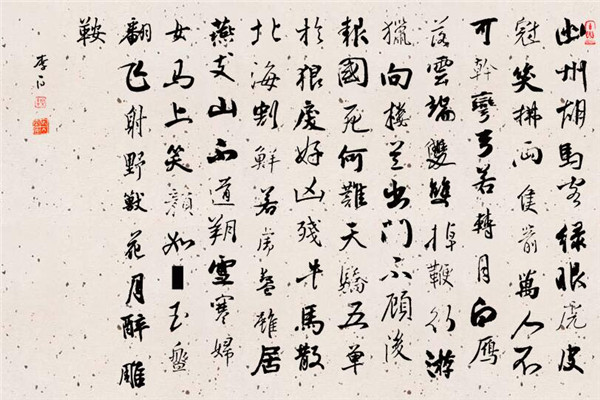 幽州胡馬客綠眼虎皮
冠笑拂兩隻箭萬人不
可幹彎弓若轉月白雁
落雲端雙雙掉鞭行游
獵向樓蘭出門不顧後
報國死何難天驕五單
於狼戾好凶殘牛馬散
北海割鮮若虎餐雖居
燕支山不道朔雪寒婦
女馬上笑顏如玉盤
翻飞射野獸花月醉雕
鞍
李